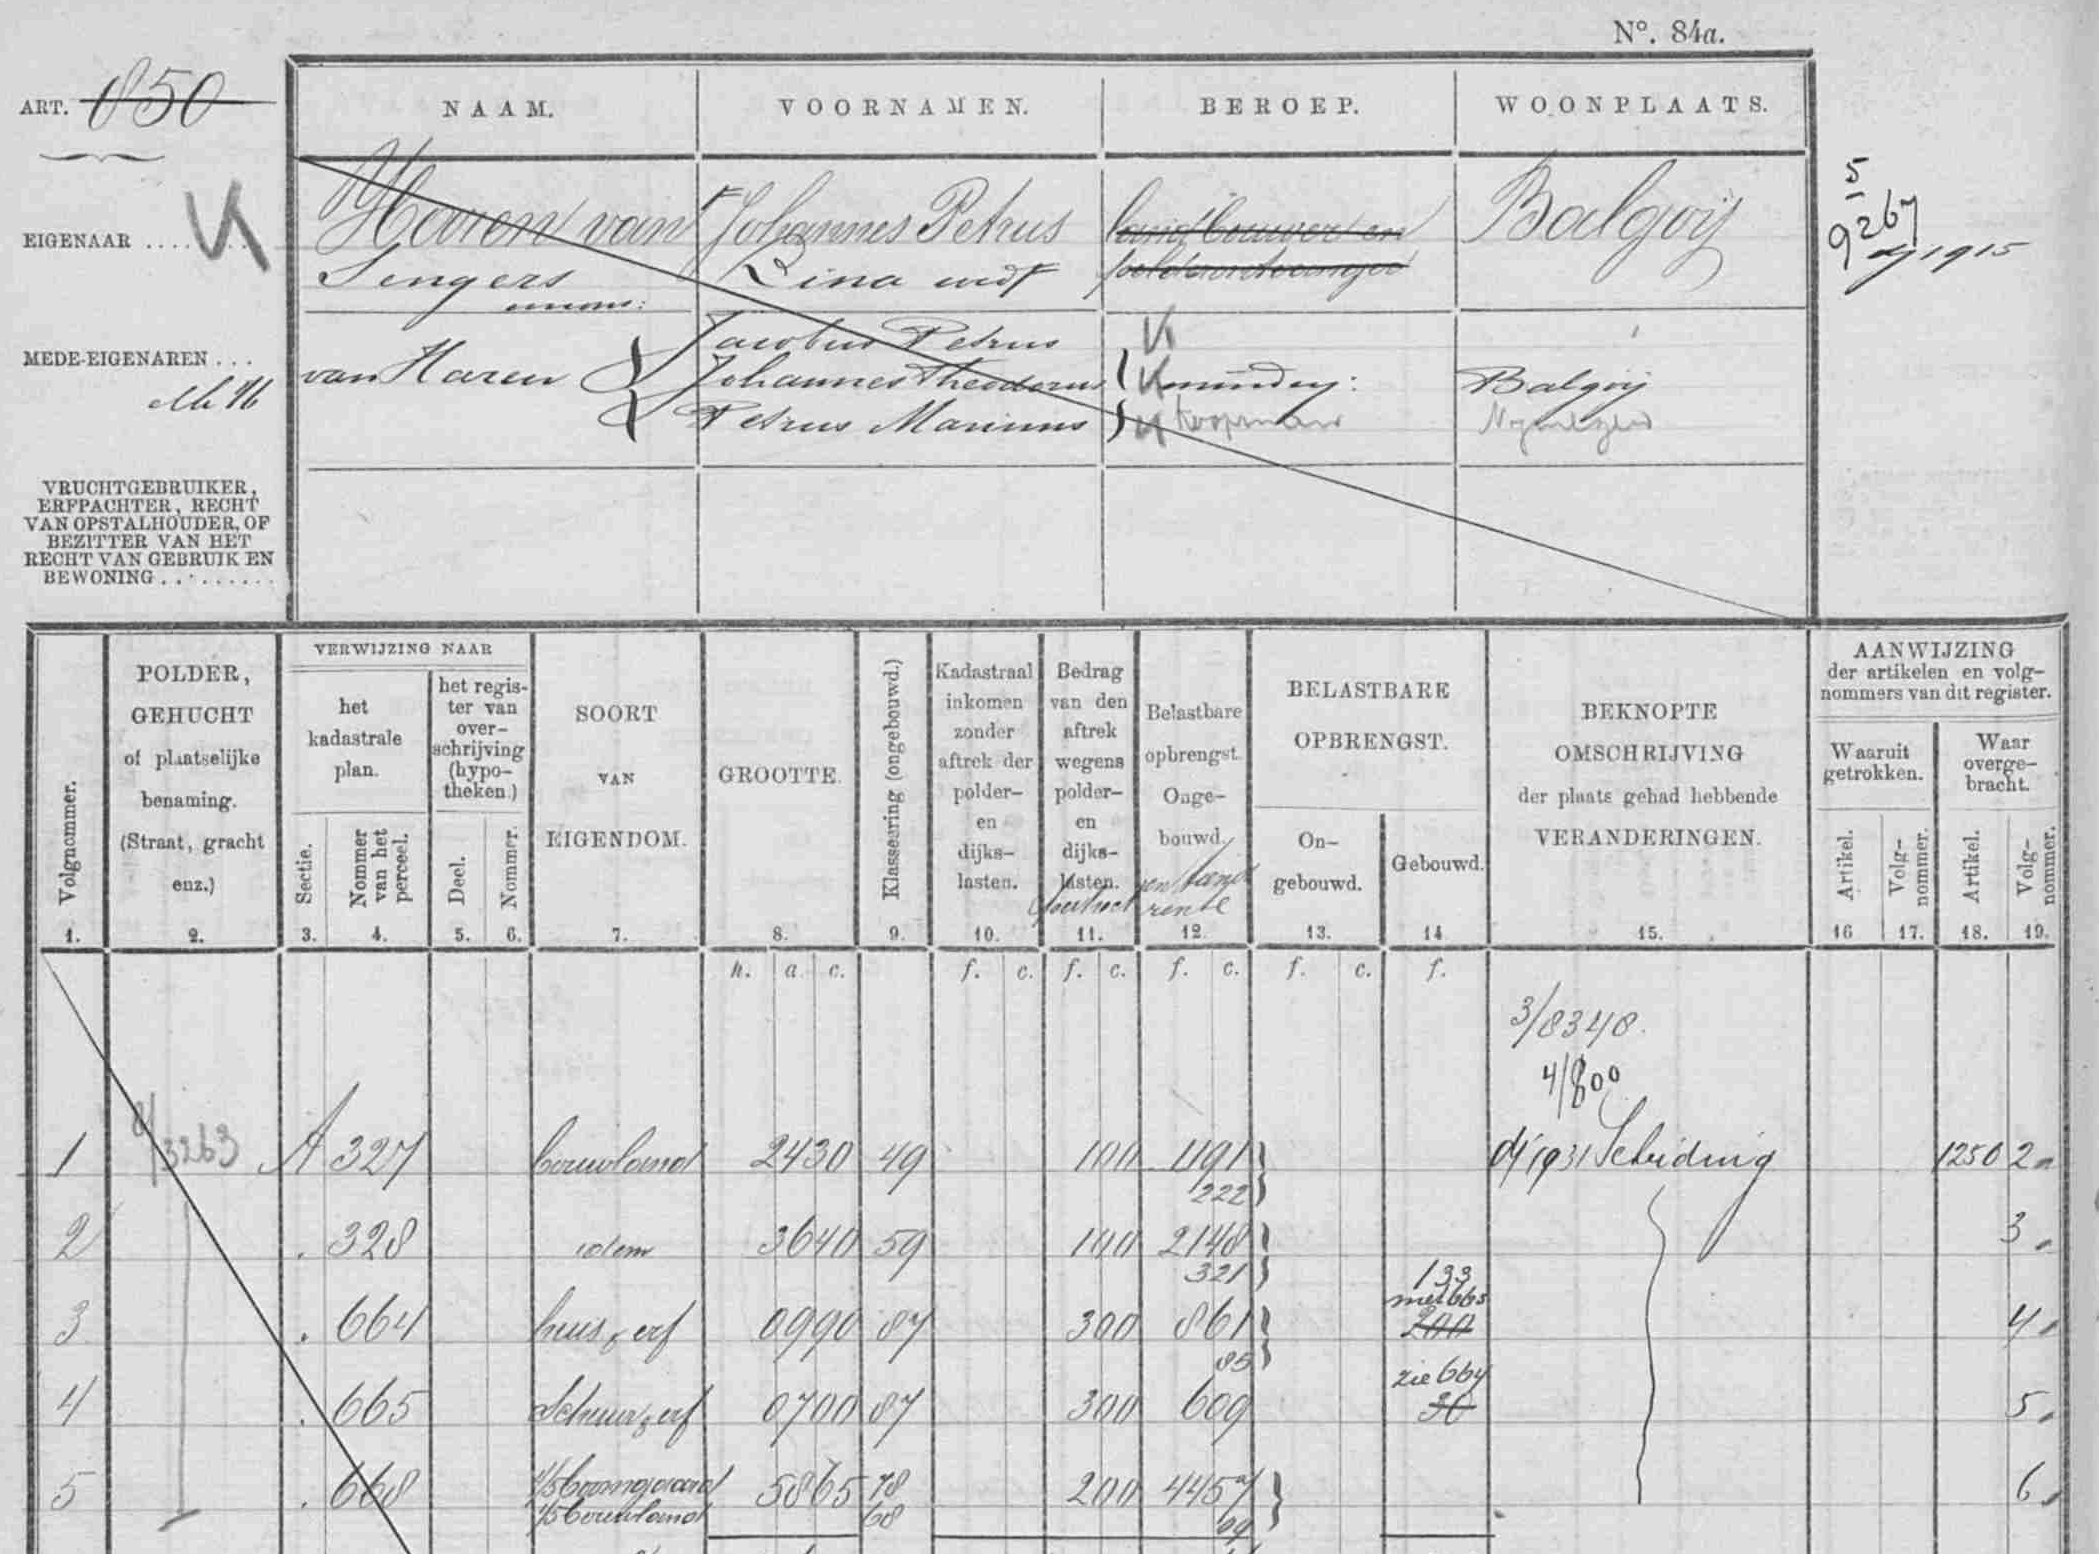 Nº. 84a.
ART. 850
NAAM. VOORNAMEN. BEROEP. WOONPLAATS.
5
9267
dj 1915
EIGENAAR .... Haren van Johannes Petrus landbouwer en Balgoij
Sengers Lina wed
MEDE-EIGENAREN ... van Haren Jacobus Petrus
Johannes Theodorus minderj: Balgoij
Petrus Marinus Koopman
VRUCHTGEBRUIKER,
ERFPACHTER, RECHT
VAN OPSTALHOUDER, OF
BEZITTER VAN HET
RECHT VAN GEBRUIK EN
BEWONING .........
Volgnommer.
1.
POLDER,
GEHUCHT
of plaatselijke
benaming.
(Straat, gracht
enz.)
2.
VERWIJZING NAAR
het
kadastrale
plan.
Sectie.
3.
Nommer
van het
perceel.
4.
het regis-
ter van
over-
schrijving
(hypo-
theken)
Deel.
5.
Nommer.
6.
SOORT
VAN
EIGENDOM.
7.
GROOTTE.
8.
Klasseering (ongebouwd.)
9.
Kadastraal
inkomen
zonder
aftrek der
polder-
en
dijks-
lasten.
10.
Bedrag
van den
aftrek
wegens
polder-
en
dijks-
lasten.
11.
Belastbare
opbrengst.
Onge-
bouwd.
rente
12.
BELASTBARE
OPBRENGST.
On-
gebouwd.
13.
Gebouwd.
14
BEKNOPTE
OMSCHRIJVING
der plaats gehad hebbende
VERANDERINGEN.
15.
AANWIJZING
der artikelen en volg-
nommers van dit register.
Waaruit
getrokken.
Artikel.
16
Volg-
nommer.
17.
Waar
overge-
bracht.
Artikel.
18.
Volg-
nommer.
19.
h. a. c. f. c. f. c. f. c. f. c. f.
3/8348.
4/800
1 8/3263 A 327 bouwland 2430 49 100 1191 dj 1931 Scheiding 1250 2
222
2 328 idem 3640 59 100 2148 3
321
133
met 665
3 664 huis, erf 0990 87 300 861 200 4
85
zie 664
4 665 Schuur, erf 0700 87 300 609 30 5
5 668 4/5 boomgaard 5865 78 200 4457 6
1/5 bouwland 68